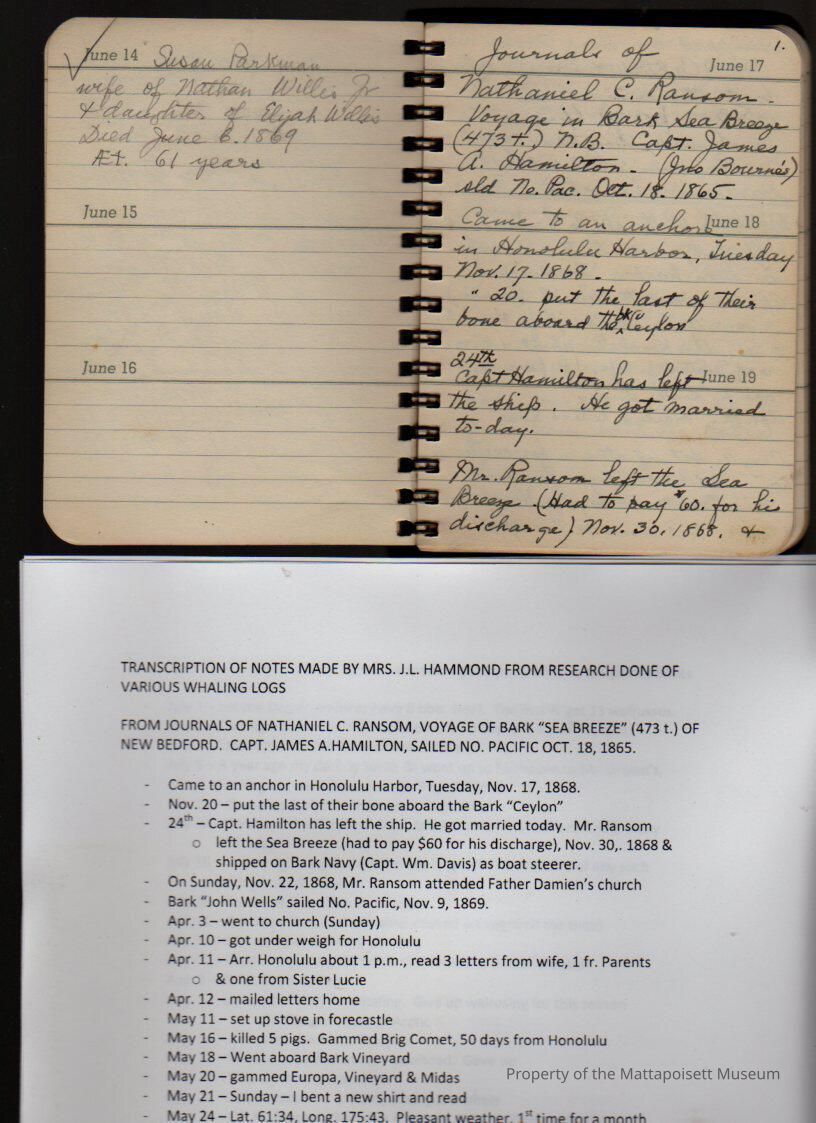 June 14 Susan Parkman
wife of Nathan Willis Jr
& daughter of Elijah Willis
Died June 6. 1869
Æt. 61 years
June 15
June 16
1.
Journals of
June 17
Nathaniel C. Ransom.
Voyage in Bark Sea Breeze
(473 t.) N.B. Capt. James
A. Hamilton - (Jno Bourne's)
sld No. Pac. Oct. 18. 1865.
Came to an anchor June 18
in Honolulu Harbor, Tuesday
Nov. 17. 1868.
" 20. put the last of their
bone aboard the bk Ceylon
24th
Capt Hamilton has left June 19
the ship. He got married
to-day.
Mr. Ransom left the Sea
Breeze. (Had to pay $60. for his
discharge) Nov. 30, 1868. &
TRANSCRIPTION OF NOTES MADE BY MRS. J.L. HAMMOND FROM RESEARCH DONE OF
VARIOUS WHALING LOGS
FROM JOURNALS OF NATHANIEL C. RANSOM, VOYAGE OF BARK “SEA BREEZE” (473 t.) OF
NEW BEDFORD. CAPT. JAMES A.HAMILTON, SAILED NO. PACIFIC OCT. 18, 1865.
- Came to an anchor in Honolulu Harbor, Tuesday, Nov. 17, 1868.
- Nov. 20 – put the last of their bone aboard the Bark “Ceylon”
- 24th – Capt. Hamilton has left the ship. He got married today. Mr. Ransom
o left the Sea Breeze (had to pay $60 for his discharge), Nov. 30,. 1868 &
shipped on Bark Navy (Capt. Wm. Davis) as boat steerer.
- On Sunday, Nov. 22, 1868, Mr. Ransom attended Father Damien’s church
- Bark “John Wells” sailed No. Pacific, Nov. 9, 1869.
- Apr. 3 – went to church (Sunday)
- Apr. 10 – got under weigh for Honolulu
- Apr. 11 – Arr. Honolulu about 1 p.m., read 3 letters from wife, 1 fr. Parents
o & one from Sister Lucie
- Apr. 12 – mailed letters home
- May 11 – set up stove in forecastle
- May 16 – killed 5 pigs. Gammed Brig Comet, 50 days from Honolulu
- May 18 – Went aboard Bark Vineyard
- May 20 – gammed Europa, Vineyard & Midas
- May 21 – Sunday – I bent a new shirt and read
- May 24 – Lat. 61:34, Long. 175:43. Pleasant weather, 1st time for a month
Property of the Mattapoisett Museum